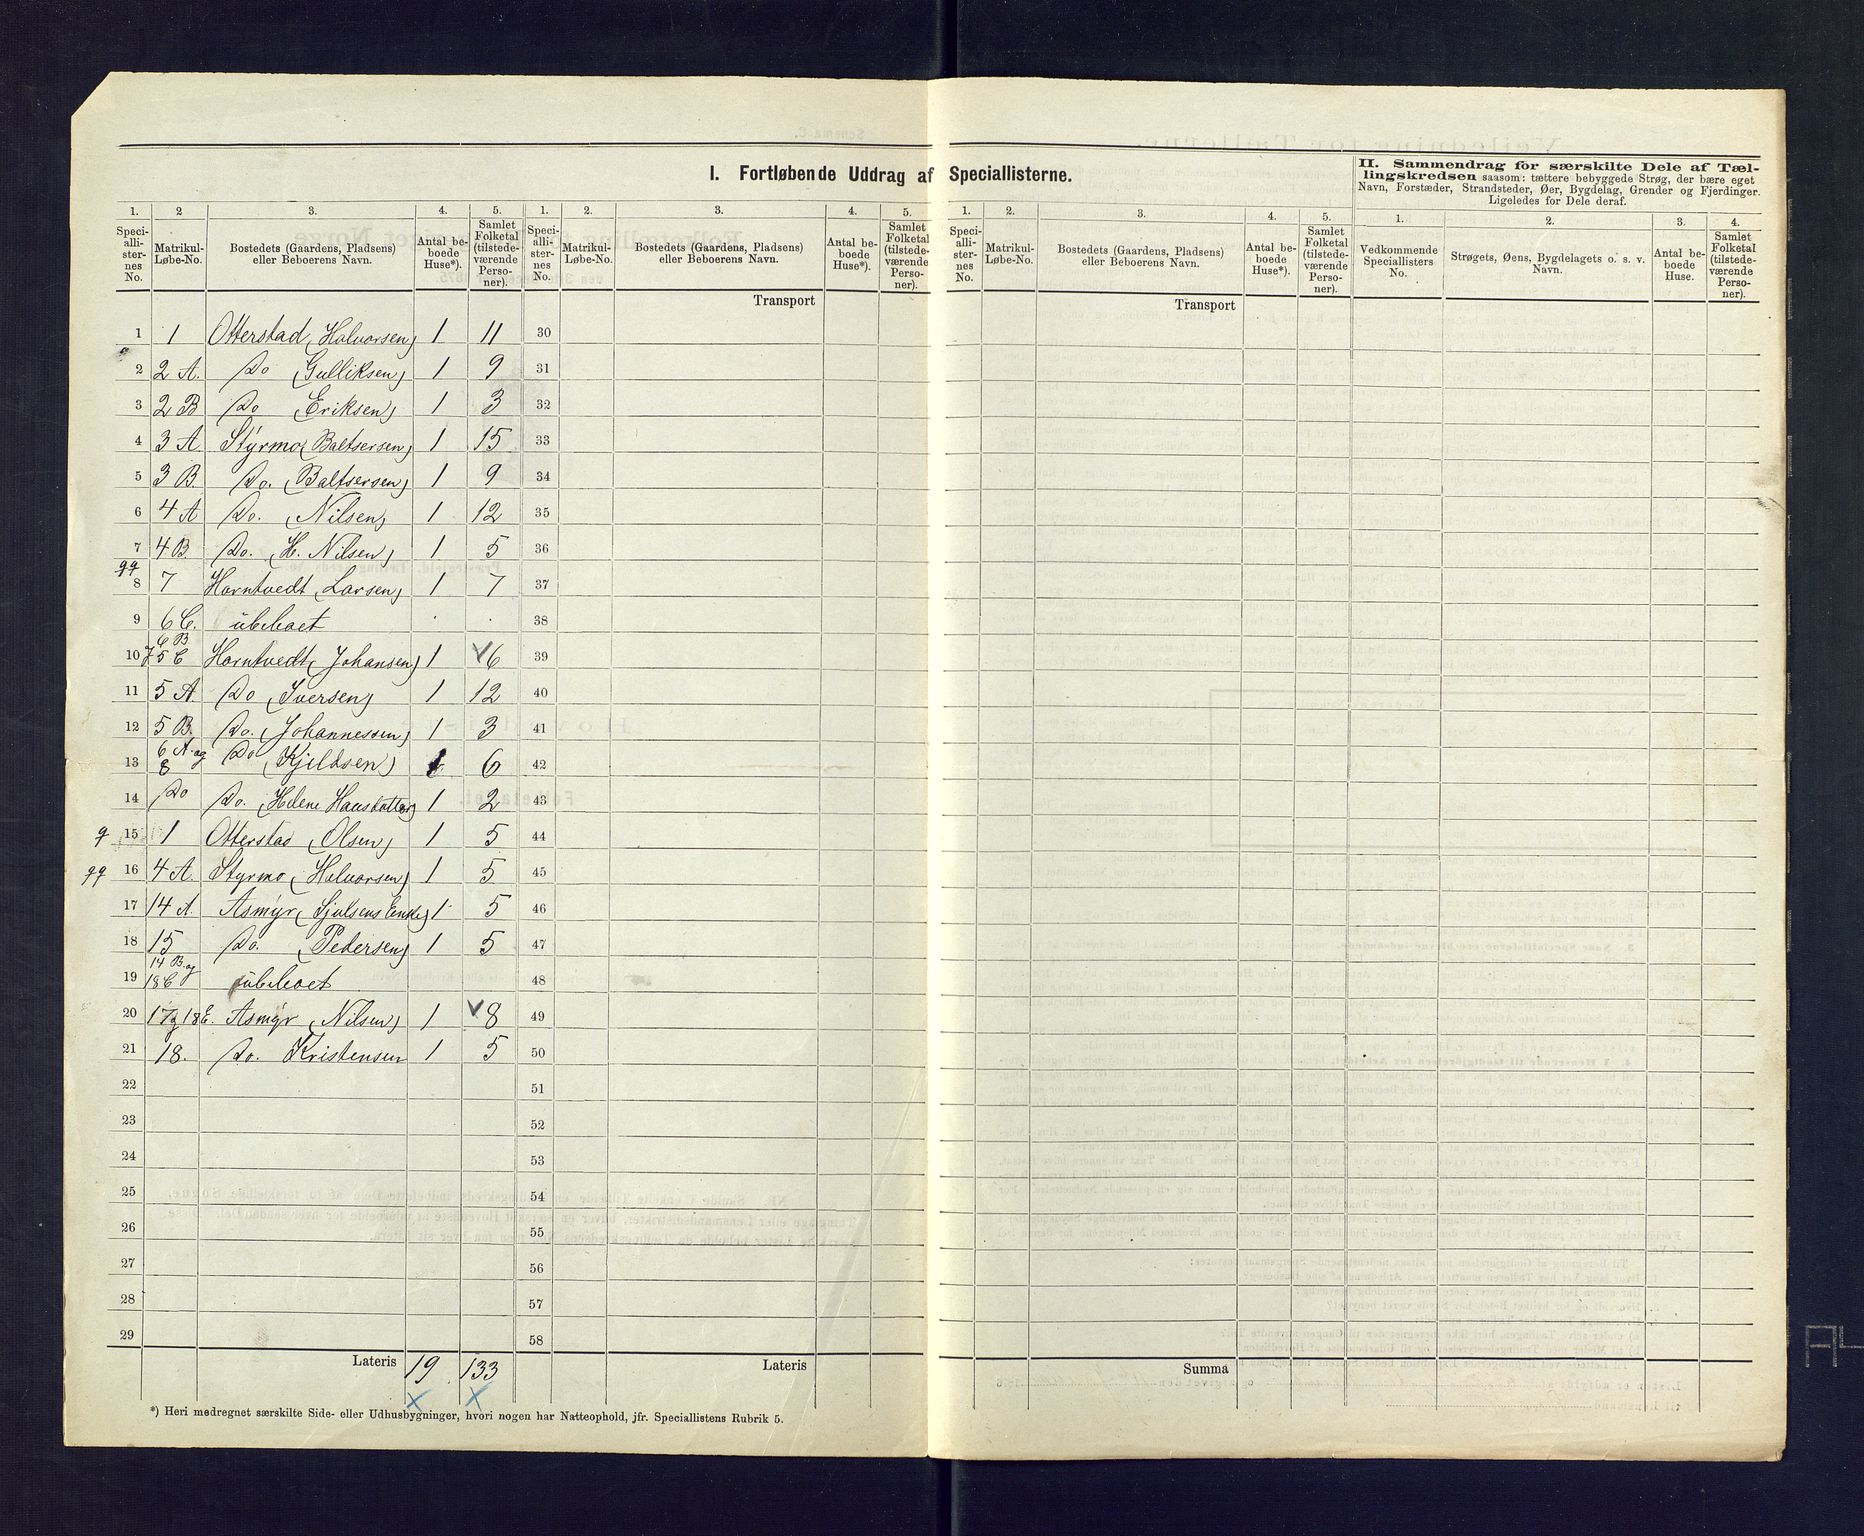 I. Fortløbende Uddrag af Speciallisterne.
II. Sammendrag for særskilte Dele af Tæl-
lingskredsen saasom: tættere bebyggede Strøg, der bære eget
Navn, Forstæder, Strandsteder, Øer, Bygdelag, Grender og Fjerdinger.
Ligeledes for Dele deraf.
1. 2 3. 4. 5. 1. 2. 3. 4. 5. 1. 2. 3. 4. 5. 1. 2. 3. 4.
Speci-alli-ster-nes No. Matrikul-Løbe-No. Bostedets (Gaardens, Pladsens) eller Beboerens Navn. Antal be-boede Huse*). Samlet Folketal (tilstede-værende Perso-ner).
Speci-alli-ster-nes No. Matrikul-Løbe-No. Bostedets (Gaardens, Pladsens) eller Beboerens Navn. Antal be-boede Huse*). Samlet Folketal (tilstede-værende Perso-ner).
Speci-alli-ster-nes No. Matrikul-Løbe-No. Bostedets (Gaardens, Pladsens) eller Beboerens Navn. Antal be-boede Huse*). Samlet Folketal (tilstede-værende Perso-ner).
Vedkommende Speciallisters No. Strøgets, Øens, Bygdelagets o. s. v. Navn. Antal be-boede Huse. Samlet Folketal (tilstede-værende Perso-ner).
Transport Transport
1 1 Otterstad (Halvorsen) 1 11 30
2 2 A. Do (Gulliksen) 1 9 31
3 2 B Do (Eriksen) 1 3 32
4 3 A Styrmo (Baltsersen) 1 15 33
5 3 B. Do. (Baltsersen) 1 9 34
6 4 A Do. (Nilsen) 1 12 35
7 4 B. Do. (H. Nilsen) 1 5 36
8 7 Horntvedt (Larsen) 1 7 37
9 6 C. ubeboet . . 38
10 6 B 5 C Horntvedt (Johansen) 1 6 39
11 5 A. Do (Iversen) 1 12 40
12 5 B. Do. (Johannessen) 1 3 41
13 6 A. og 8 Do (Kjeldsen) 1 6 42
14 Do Do. (Helene Hansdatter) 1 2 43
15 1 Otterstad (Olsen) 1 5 44
16 4 A. Styrmo (Halvorsen) 1 5 45
17 14 A. Asmyr (Sjulsens Enke) 1 5 46
18 15 Do. (Pedersen) 1 5 47
19 14 B. og 18 C ubeboet 48
20 17 og 18 E. Asmyr (Nilsen) 1 8 49
21 18. Do. Kristensen 1 5 50
22 51
23 52
24 53
25 54
26 55
27 56
28 57
29 58
Lateris 19 133 Lateris Summa
*) Heri medregnet særskilte Side- eller Udhusbygninger, hvori nogen har Natteophold, jfr. Speciallistens Rubrik 5.